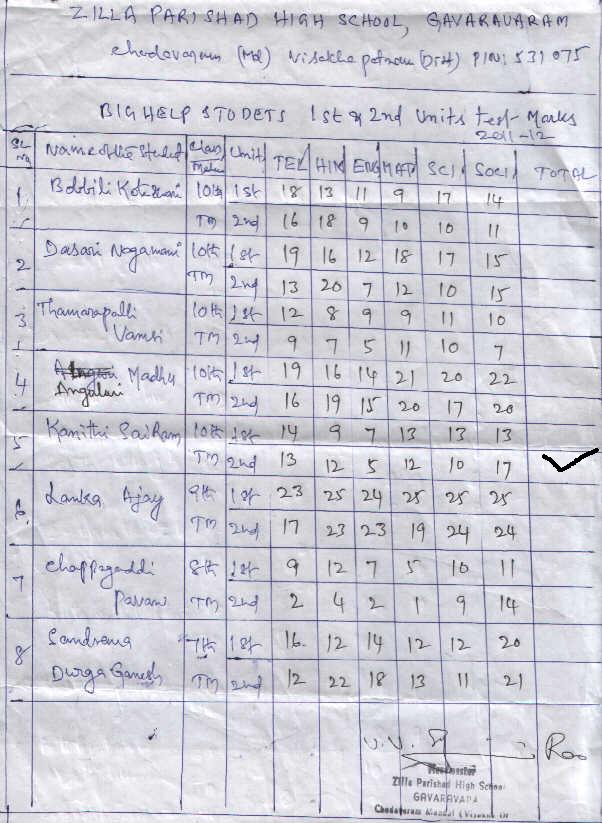 ZILLA PARISHAD HIGH SCHOOL, GAVARAVARAM
Chodavaram (Md) Visakhapatnam (Dist) PIN: 531075
BIGHELP STODETS 1st & 2nd Units test Marks
2011-12
SL NO Name of the Student Class Medium Unit TEL HIN ENG MAT SCI SOCI TOTAL
1 Bobbili Koteswari 10th 1st 18 13 11 9 17 14
TM 2nd 16 18 9 10 10 11
2 Dasari Nagamani 10th 1st 19 16 12 18 17 15
TM 2nd 13 20 7 12 10 15
3 Thamarapalli 10th 1st 12 8 9 9 11 10
Vamsi TM 2nd 9 7 5 11 10 7
4 Madhu 10th 1st 19 16 14 21 20 22
Angalari TM 2nd 16 19 15 20 17 20
5 Kamithi SaiRam 10th 1st 14 9 7 13 13 13
TM 2nd 13 12 5 12 10 17
6. Lanka Ajay 9th 1st 23 25 24 25 25 25
TM 2nd 17 23 23 19 24 24
7 Chappagaddi 8th 1st 9 12 7 5 10 11
Pavani TM 2nd 2 4 2 1 9 14
8 Sandrema 7th 1st 16. 12 14 12 12 20
Durga Ganesh TM 2nd 12 22 18 13 11 21
V.V. Rao
Headmaster
Zilla Parishad High School
GAVARAVARA
Chodavaram Mandal